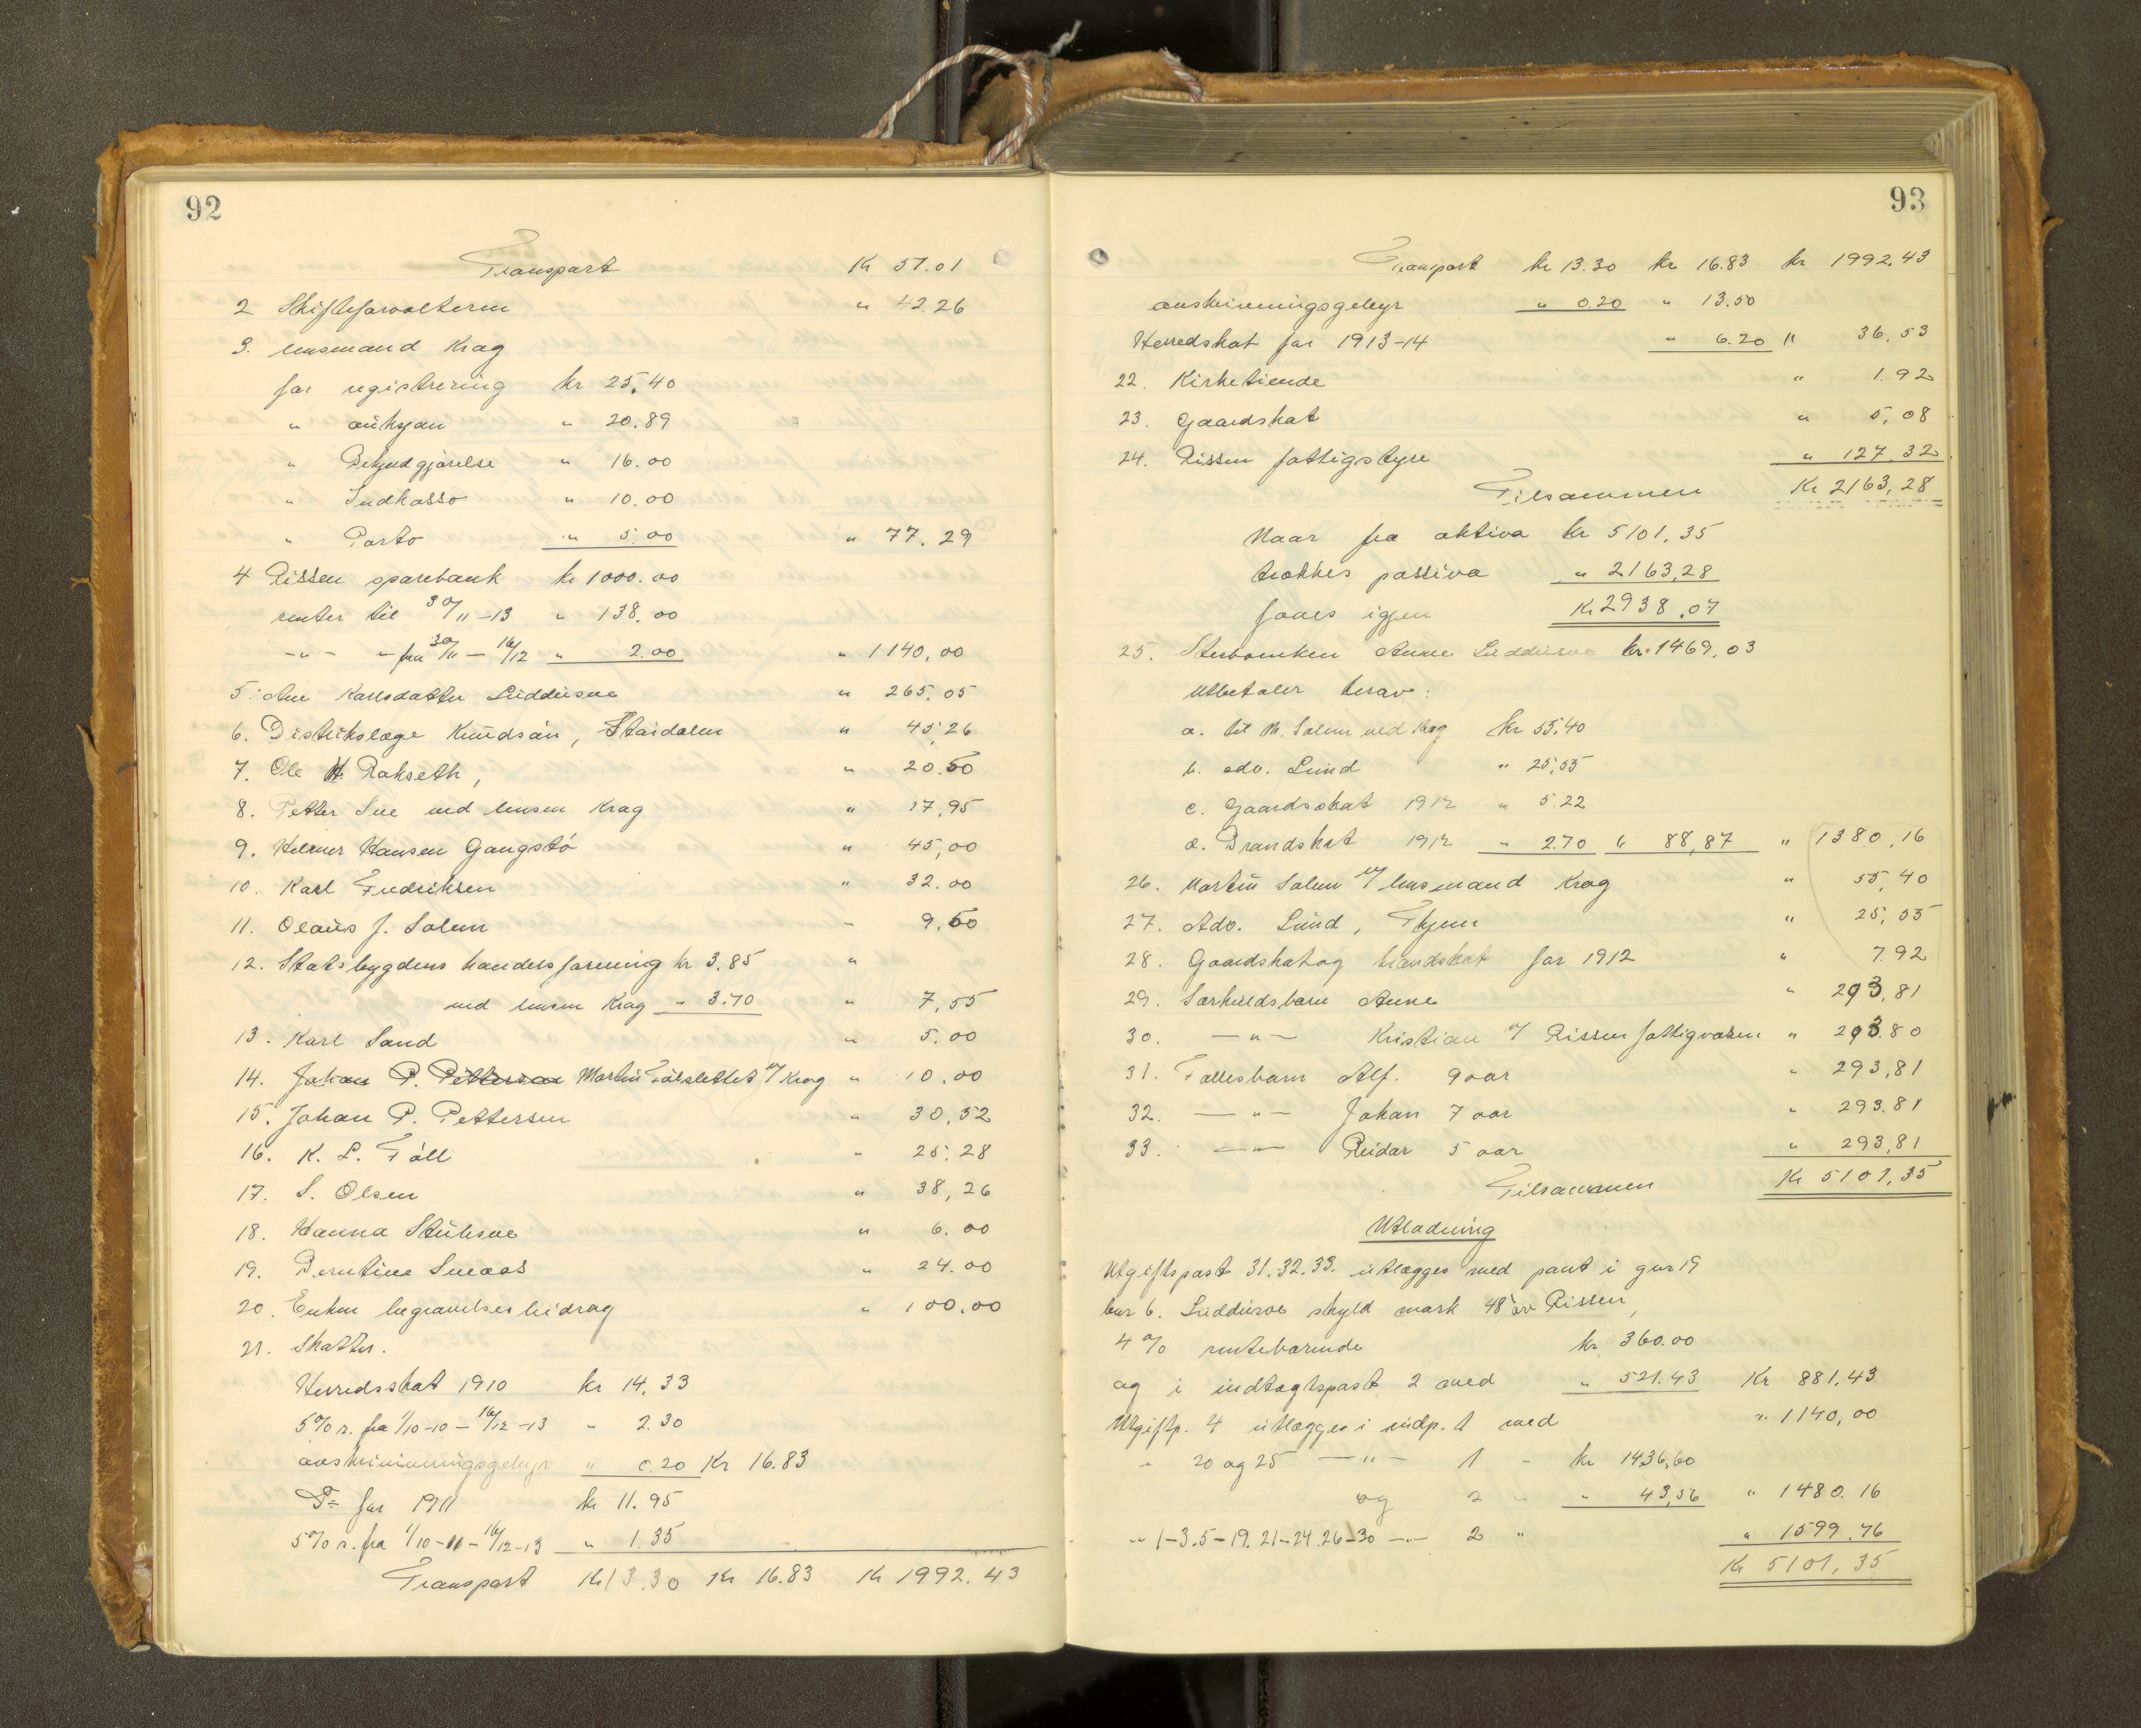 92
Transport Kr 57.01
2 Skifteforvalteren " 42.26
3. lensmand Krag
for registrering kr 25.40
" auksjon " 20.89
" Bekjendgjørelse " 16.00
" Indkasso " 10.00
" Porto " 5.00 " 77.29
4 Rissen sparebank kr 1000.00
renter til 30/11-13 " 138.00
-"- " fra 30/11 - 16/12 " 2.00 " 1140,00
5. Ane Karlsdatter Ludduvoe " 265,05
6. Distrikslæge Knudsøn, Stadsdalen " 45,26
7. Ole H. Rokseth, " 20.50
8. Petter Sve ved lensm Krag " 17,95
9. Helmer Hansen Gangstø " 45,00
10. Karl Fredriksen " 32.00
11. Olaus J. Solem " 9,60
12. Statsbygdens handelsforening kr 3.85 "
ved lensm Krag " 3.70 " 7,55
13. Karl Sand " 5.00
14. Johan P. Pettersen Martin v/ Krag " 10.00
15. Johan P. Pettersen " 30,52
16. K. L. Føll " 25.28
17. S. Olsen " 38,26
18. Hanna " 6.00
19. Berntine " 24.00
20. Enken begravelsesbidrag " 100.00
21. Skatter.
Herredsskat 1910 kr 14,33
5% r. fra 1/10-10 - 16/12-13 " 2.30
avskrivningsgebyr " 0.20 Kr 16.83
Do for 1911 kr 11.95
5% r. fra 1/10-11 - 16/12-13 " 1.35
Transport Kr 13.30 Kr 16.83 Kr 1992.43
93
Transport kr 13.30 kr 16.83 kr 1992.43
avskrivningsgebyr " 0.20 " 13.50
Herredskat for 1913-14 " 6.20 " 36,53
22. Kirketiende " 1.92
23. Gaardskat " 5,08
24. Rissen fattigstyre " 127,32
Tilsammen Kr 2163,28
Naar fra aktiva kr 5101,35
trækkes passiva " 2163,28
faaes igjen Kr 2938,07
25. Sterboenken Anne Ludduvoe kr. 1469,03
Utbetaler herav:
a. til M. Solem ved Krag kr 55,40
b. adv. Lund " 25,55
c. Gaardsskat 1912 " 5.22
d. Brandskat 1912 " 2.70 " 88,87 " 1380,16
26. Martin Solem v/ lensmand Krag " 55,40
27. Adv. Lund, Thjem " 25,55
28. Gaardskat og brandskat for 1912 " 7.92
29. Særkuldsbarn Anne " 293,81
30. -"- Kristian v/ Rissen fattigvæsen " 293.80
31. Fællesbarn Alf. 9 aar " 293,81
32. -"- Johan 7 aar " 293.81
33. -"- Reidar 5 aar " 293,81
Tilsammen Kr 5101,35
Utlodning
Utgiftspost 31. 32. 33. utlægges med pant i gnr 19
bnr 6. Ludduvoe skyld mark 48 av Rissen,
4% rentebærende kr 360.00
og i indtægtspost 2 med " 521.43 Kr 881,43
Utgiftp. 4 utlægges i indp. 1 med " 1140,00
" 20 og 25 -"- 1 - kr 1436,60
og 2 " " 43,56 " 1480.16
" 1-3. 5-19. 21-24. 26-30 -"- 2 " " 1599.76
Kr 5101,35